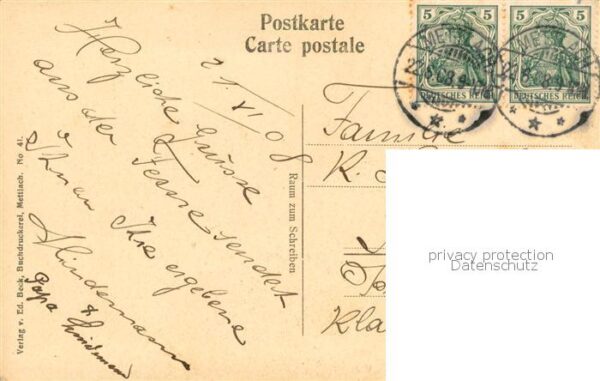 Postkarte
Carte postale
5 5
5 5
DEUTSCHES REICH
DEUTSCHES REICH
METTLACH
METTLACH
Herzliche Grüsse
aus der Ferne sendet
Ihnen Ihre ergebene
Lindemann
&
Papa Lindemann
Familie
R.
Kla
Raum zum Schreiben
Verlag v. Ed. Beck, Buchdruckerei, Mettlach. No 41.
privacy protection
Datenschutz